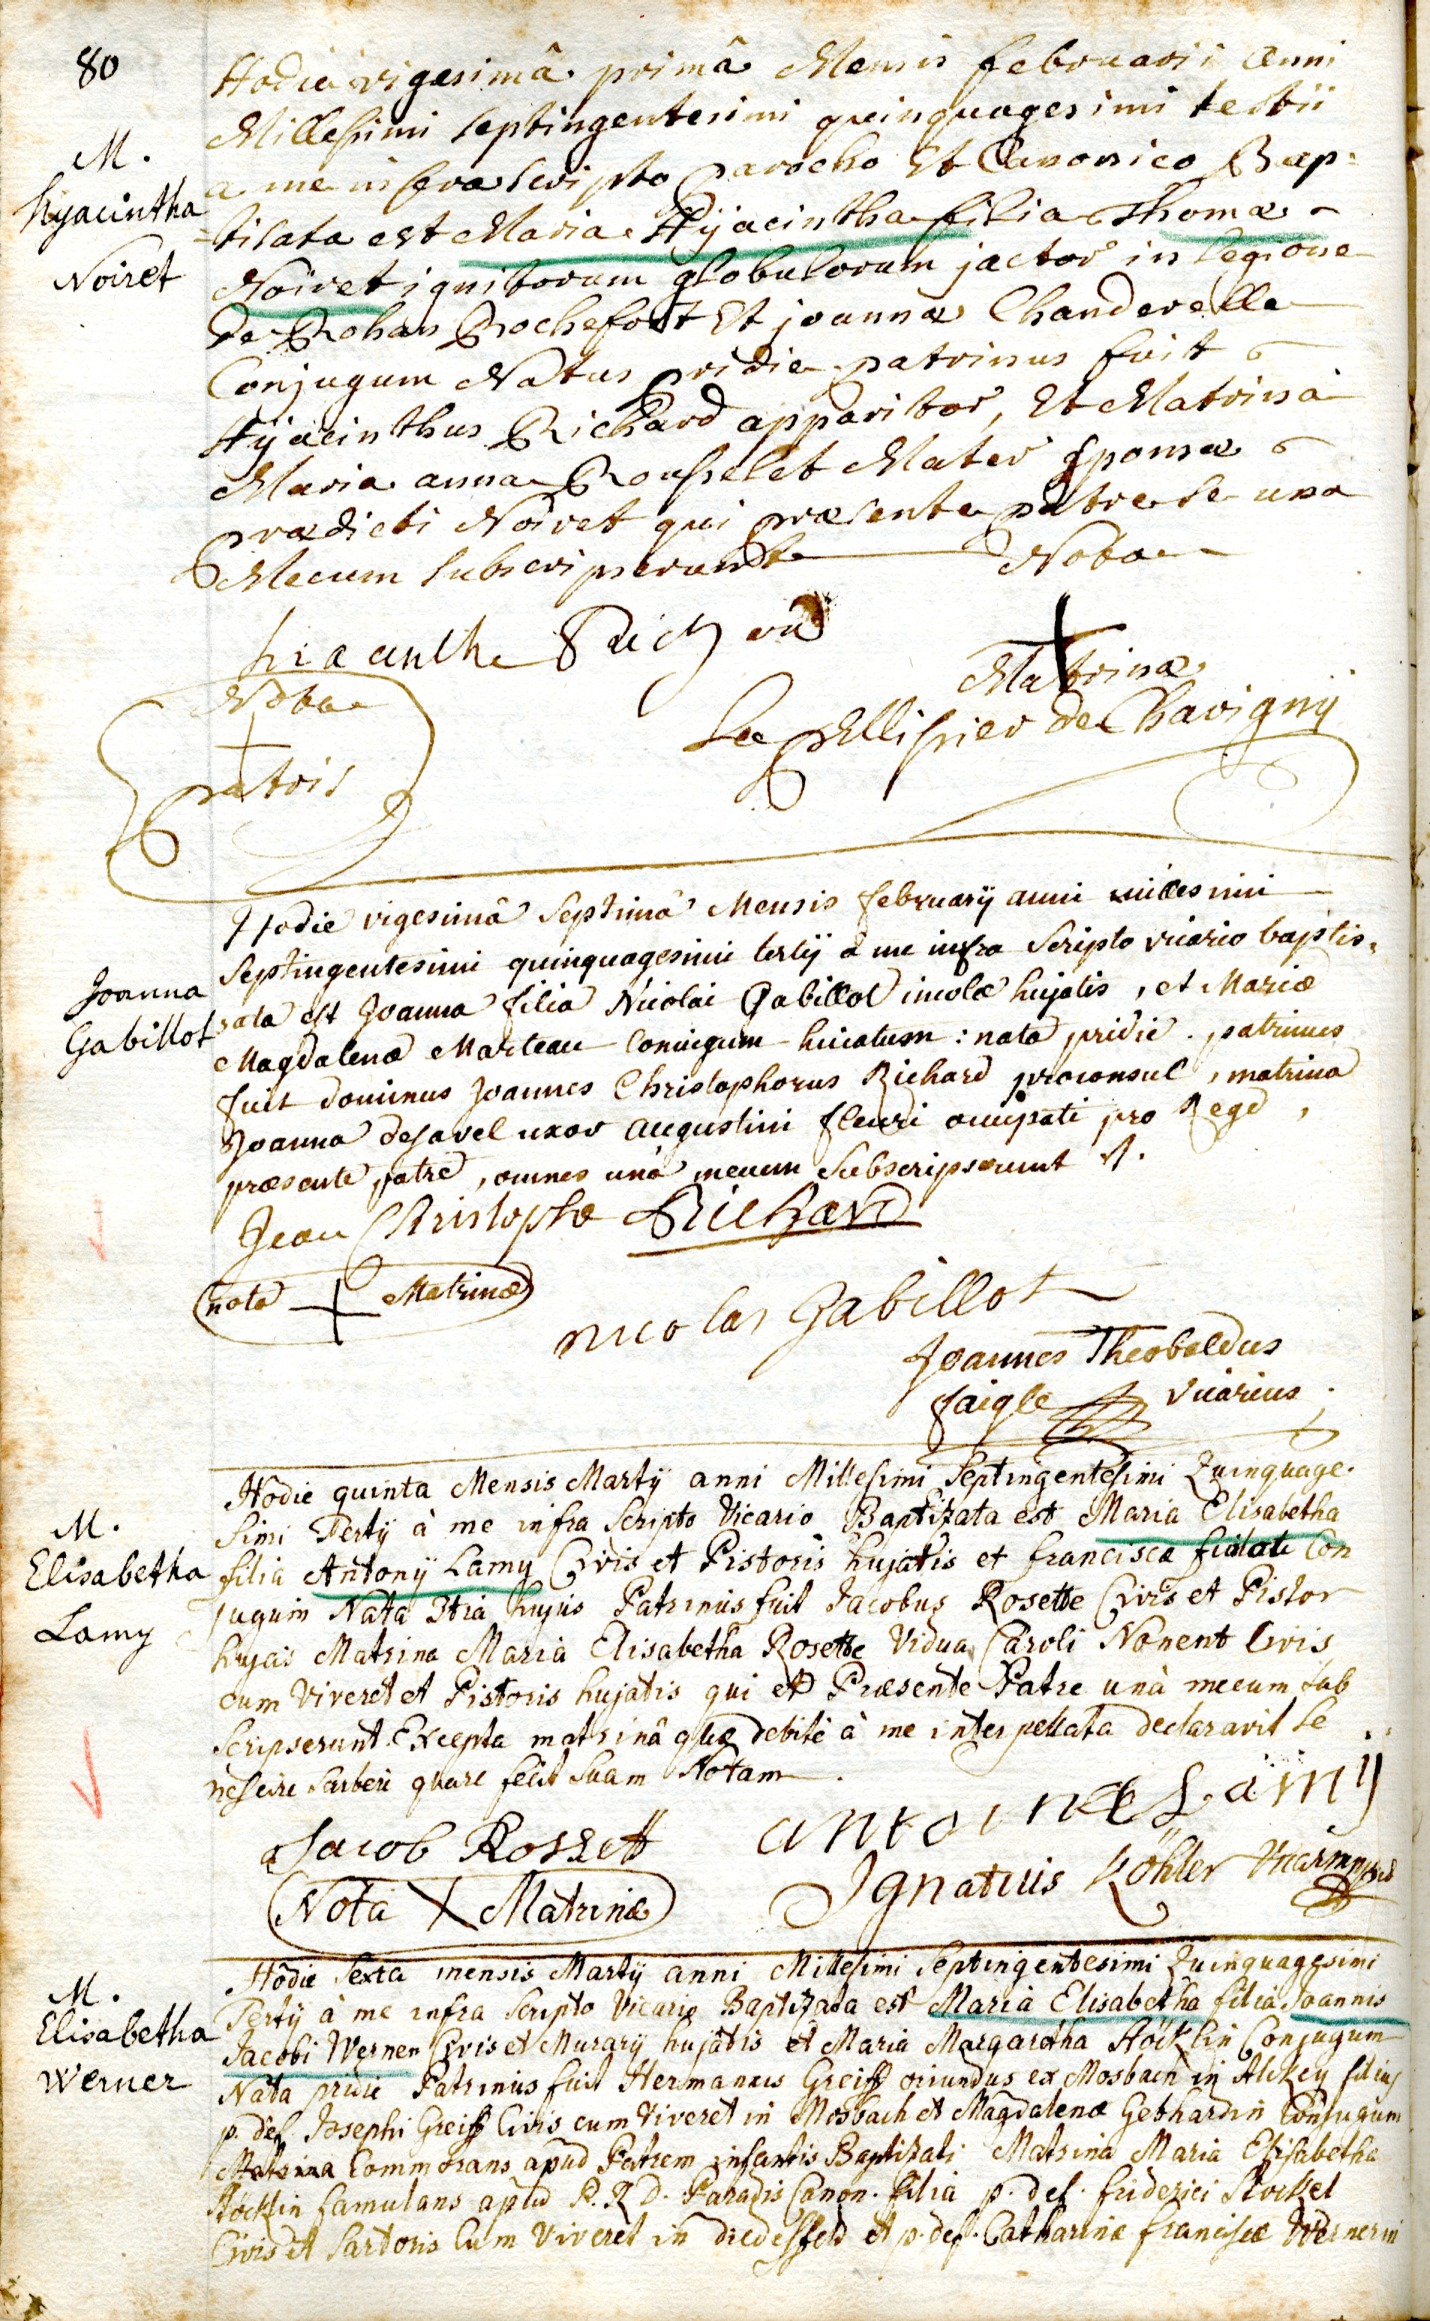 80
M.
hyacintha
Noiret
Hodie vigesimâ primâ Mensis februarii Anni
Millesimi septingentesimi quinquagesimi tertii
a me infrascripto Parocho Et Canonico Bap=
=tisata est Maria Hÿacintha filia Thomæ
Noiret ignitorum globulorum jactor in Legione
De Rohan Rochefort Et joannæ Chanderelle
Conjugum Natus pridie patrinus fuit
Hÿacinthus Richard apparitor, Et Matrina
Maria anna Rousselet Mater sponsæ
prædicti Noiret qui præsente patre se una
Mecum subscripserunt Nota
hiacinthe Richard
Matrinæ
Nota
patris
Le pellissier de Chavignÿ
Joanna
Gabillot
Hodie vigesimâ Septimâ Mensis februarÿ anni millesimi
Septingentesimi quinquagesimi tertÿ à me infra Scripto vicario baptis=
sata est Joanna filia Nicolai Gabillot incolæ hujatis, et Mariæ
Magdalenæ Marteau Conjugum hicatum: nata pridie. patrinus
fuit dominus Joannes Christophorus Richard proconsul, matrina
Joanna desavel uxor augustini fleuri occupati pro Rege,
præsente patre, omnes unà mecum Subscripserunt
Jean Christophe Richard
nota Matrinæ
nicolas Gabillot
Joannes Theobaldus
faigle vicarius.
M.
Elisabetha
Lamy
Hodie quinta Mensis Martÿ anni Millesimi Septingentesimi Quinquage-
simi Tertÿ à me infra Scripto Vicario Baptizata est Maria Elisabetha
filia Antonÿ Lamy Civis et Pistoris hujatis et franciscæ fialati Con
jugum Nata 3tia hujus Patrinus fuit Jacobus Rosette Civis et Pistor
hujas Matrina Maria Elisabetha Rosette Vidua Caroli Nonent Civis
cum Viveret et Pistoris hujatis qui et Præsente Patre unà mecum sub
Scripserunt Excepta matrinâ quæ debitè à me interpellata declaravit se
nescire scribere quare fecit suam Notam.
Jacob Rosset
antoine Lamÿ
Nota Matrinæ
Ignatius Köhler Vicarius
M.
Elisabetha
Werner
Hodie Sexta mensis Martÿ anni Millesimi Septingentesimi Quinquagesimi
Tertÿ à me infra Scripto Vicario Baptizata est Maria Elisabetha filia Joannis
Jacobi Werner Civis et Murarÿ hujatis et Maria Margaretha Stöcklin Conjugum
Nata pridie Patrinus fuit Hermannus Greiff oriundus ex Mosbach in Alckey filius
p. def. Josephi Greiff Civis cum Viveret in Mosbach et Magdalenæ Gebhardin Conjugum
Matrina Commorans apud Patrem infantis Baptizati Matrina Maria Elisabetha
Stöcklin famulans apud P. R. D. Paradis Canon. filia p. def. friderici Stöckel
Civis et Sartoris Cum Viveret in diedesfeld et p. def. Catharinæ franciscæ Wernerin